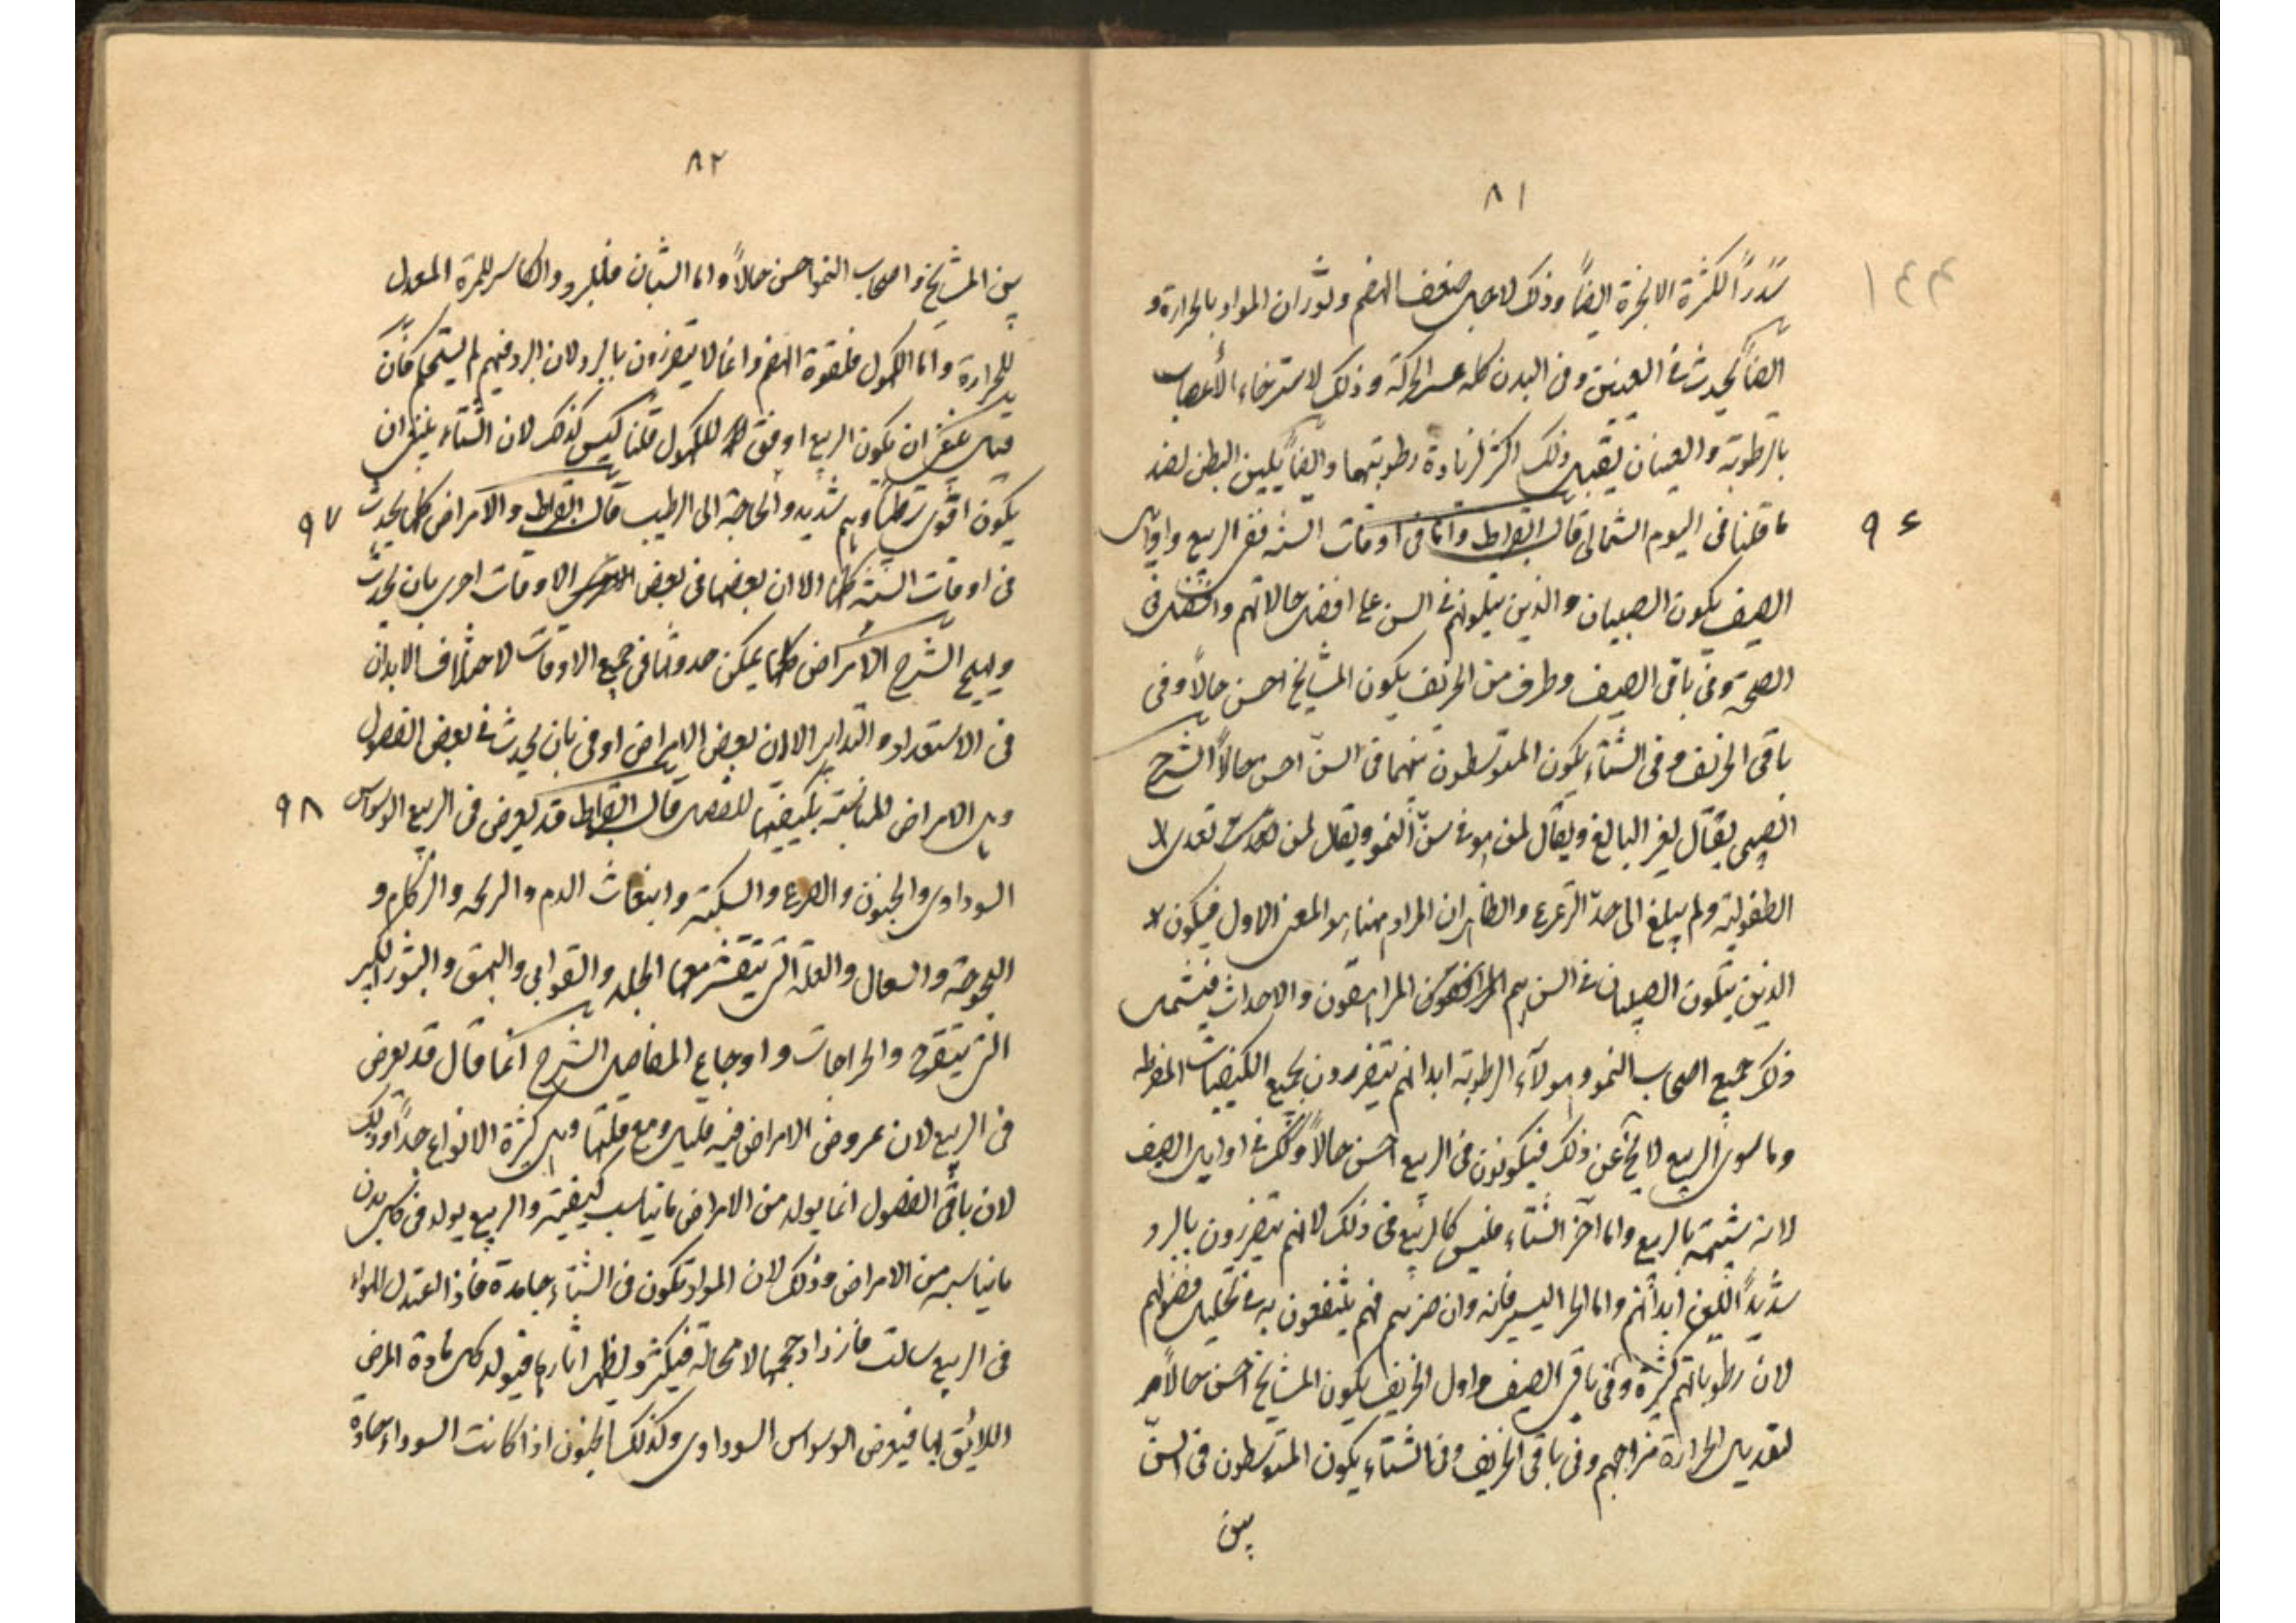 ٨١
١٤٣
سَدَرًا لكثرة الابخرة ايضًا وذلك لاجل ضعف الهضم ولثوران المواد بالحرارة و
ايضًا يحدث فى العينين وفى البدن كله عسر الحركة وذلك لاسترخاء الأعصاب
بالرطوبة والعينان يقبل ذلك اكثر لزيادة رطوبتهما وايضًا يلين البطن لضد
ما قلنا فى اليوم الشمالى قال ابقراط واما فى اوقات السنه ففى الربيع واوايل
٩٦
الصيف يكون الصبيان والذين يتلونهم فى السن على افضل حالاتهم واكمل فى
الصحة وفى باقى الصيف وطرف من الخريف يكون المشايخ احسن حالًا وفى
باقى الخريف وفى الشتاء يكون المتوسطون بينهما فى السنّ احسن حالًا الشرح
الصبى يقال لغير البالغ ويقال لمن هو فى سنّ النمو ويقال لمن تعدى
الطفولية ولم يبلغ الى حدّ الترعرع والظاهر ان المراد ههنا هو المعنى الاول فيكون
الذين يتلون الصبيان فى السن هم المراهقون والاحداث فيشمل
ذلك جميع اصحاب النمو وهولآء لرطوبة ابدانهم يتضررون بجميع الكيفيات المفرطه
وما سوى الربيع لا يخ عن ذلك فيكونون فى الربيع احسن حالًا وكك فى اوايل الصيف
لانه شبيهة بالربيع واما آخر الشتاء فليس كالربيع فى ذلك لانهم يتضررون بالبرد
شديدًا للين ابدانهم واما الحر اليسير فانه وان ضرهم فهم ينتفعون به فى تحليل فضولهم
لان رطوباتهم كثيرة وفى باقى الصيف واول الخريف يكون المشايخ احسن حالًا
لتعديل الحرارة مزاجهم وفى باقى الخريف وفى الشتاء يكون المتوسطون فى السن
بين
٨٢
بين المشايخ واصحاب النمو احسن حالًا واما الشبان فللبرد الكاسر للمرة المعدل
للحرارة واما الكهول فلقوة الهضم وانما لا يتضررون بالبرد لان البرد فيهم لم يستحكم فان
قيل ينبغى ان يكون الربيع اوفق للكهول قلنا ليس كذلك لان الشتاء ينبغى ان
يكون اقوى ترطيبًا وهم شديدو الحاجة الى الترطيب قال ابقراط والامراض كلها يحدث
٩٧
فى اوقات السنة كلها الا ان بعضها فى بعض الاوقات احرى بان يحدث
ويهيج الشرح الامراض كلها يمكن حدوثها فى جميع الاوقات لاختلاف الابدان
فى الاستعداد والتدابير الا ان بعض الامراض اوفى بان يحدث فى بعض الفصول
وهى الامراض المناسبة بكيفيتها للفصل قال ابقراط قد يعرض فى الربيع الوسواس
٩٨
السوداوى والجنون والصرع والسكتة وانبعاث الدم والذبحه والزكام و
البحوحة والسعال والعلة التى يتقشر معها الجلد والقوابى والبهق والبثور الكثير
التى يتقرح والخراجات واوجاع المفاصل الشرح انما قال قد يعرض
فى الربيع لان عروض الامراض فيه قليل ومع قلتها وهى كثيرة الانواع جدًا وذلك
لان باقى الفصول انما يولد من الامراض ما يناسب كيفيته والربيع يولد فى كل بدن
ما يناسبه من الامراض وذلك لان المواد تكون فى الشتاء جامدة فاذا اعتدل الهواء
فى الربيع سالت فازداد حجمها لا محالة فيكثر ويظهر اثارها فيتولد كل مادة المرض
اللائق بها فيعرض الوسواس السوداوى وكذلك الجنون اذا كانت السوداء حادة